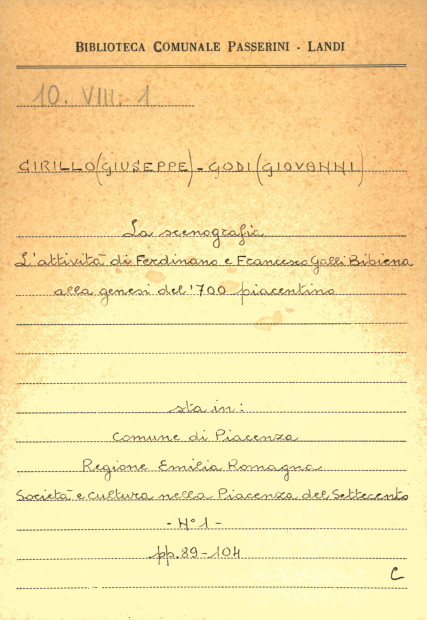 BIBLIOTECA COMUNALE PASSERINI - LANDI
10. VIII. 1
CIRILLO (GIUSEPPE) - GODI (GIOVANNI)
La scenografia
L'attività di Ferdinano e Francesco Galli Bibiena
alla genesi del '700 piacentino
sta in:
Comune di Piacenza
Regione Emilia Romagna
Società e cultura nella Piacenza del Settecento
- N° 1 -
pp. 89-104
C